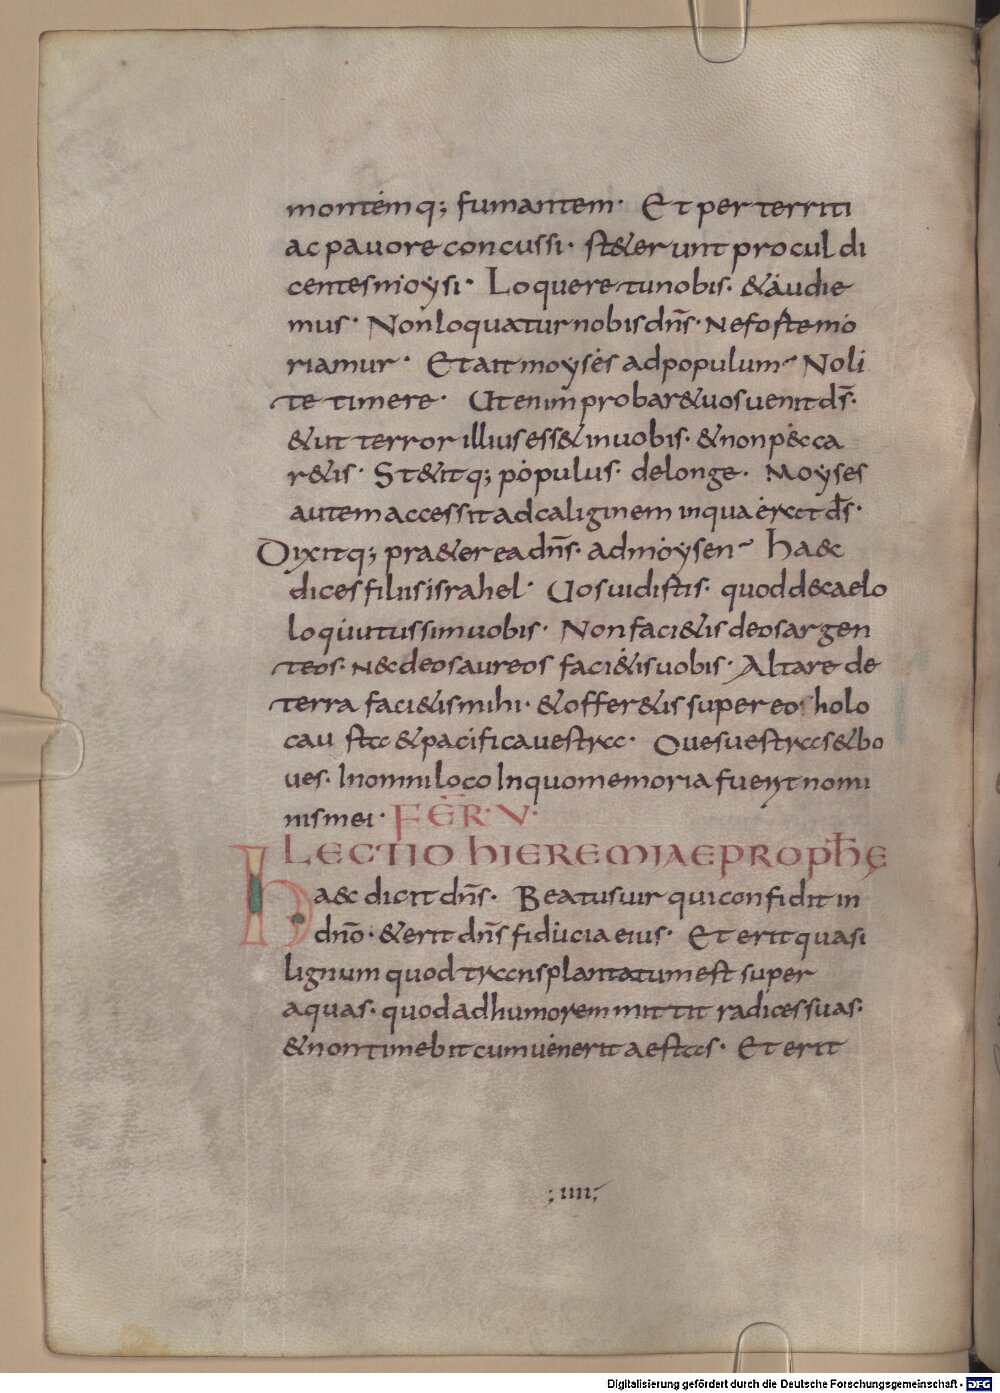 montemq; fumantem· Et per territi
ac pauore concussi· st&erunt procul di
centes moysi· Loquere tu nobis· &audie
mus· Non loquatur nobis dn̄s· Ne forte mo
riamur· Et ait moyses ad populum· Noli
te timere· Ut enim probar& uos uenit ds̄·
& ut terror illius ess& in uobis· & non pecca
r&is· St&itq; populus· de longe· Moyses
autem accessit ad caliginem in qua erat ds̄·
Dixitq; pra&erea dn̄s· ad moysen· ha&c
dices filiis israhel· Uos uidistis· quod de caelo
loquutus sim uobis· Non faci&is deos argen
teos· N&c deos aureos faci&is uobis· Altare de
terra faci&is mihi· & offer&is super eo holo
causta & pacifica uestra· Oues uestras & bo
ues· In omni loco In quo memoria fuerit nomi
nis mei· FER̄· V·
LECTIO hIEREMIAE PROPħE
ha&c dicit dn̄s· Beatus uir qui confidit in
dn̄o· & erit dn̄s fiducia eius· Et erit quasi
lignum quod transplantatum est super
aquas· quod ad humorem mittit radices suas·
& non timebit cum uenerit aestas· Et erit
; IIII;
Digitalisierung gefördert durch die Deutsche Forschungsgemeinschaft - DFG